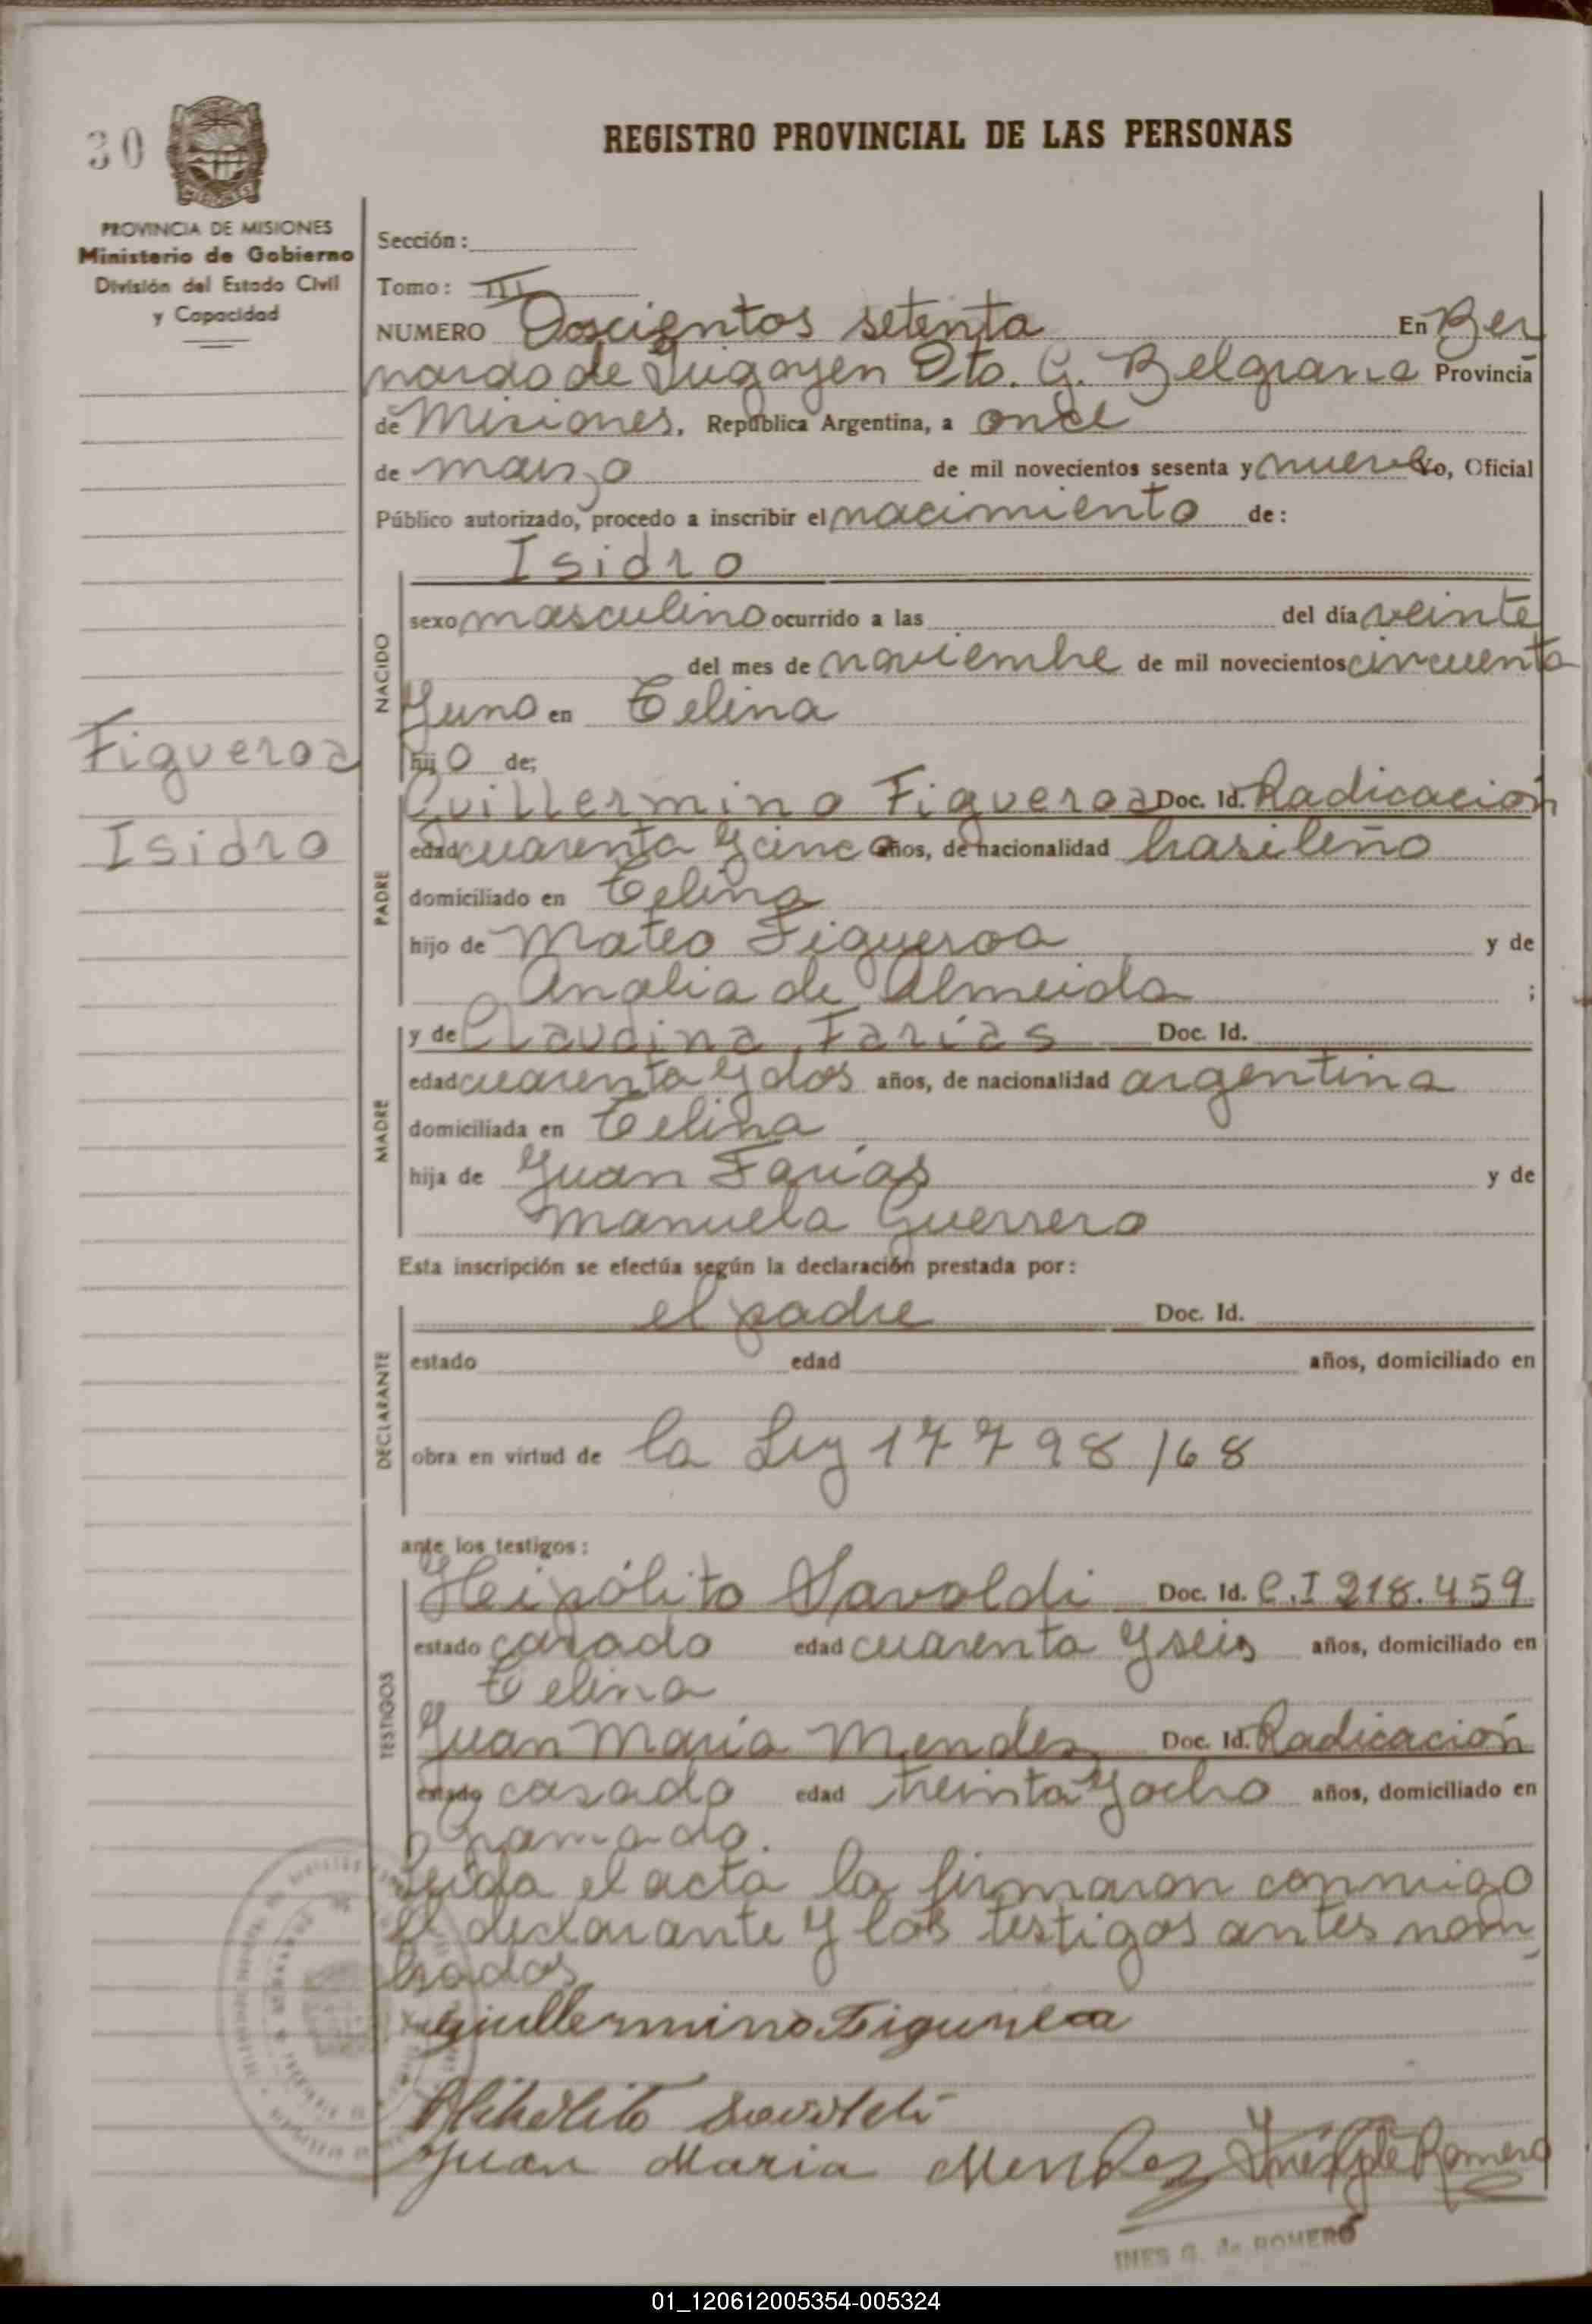 30
REGISTRO PROVINCIAL DE LAS PERSONAS
PROVINCIA DE MISIONES
Ministerio de Gobierno
División del Estado Civil
y Capacidad
Sección:
Tomo: III
NUMERO Doscientos setenta En Ber
nardo de Irigoyen Dto. G. Belgrano Provincia
de Misiones, República Argentina, a once
de marzo de mil novecientos sesenta y nueve Yo, Oficial
Público autorizado, procedo a inscribir el nacimiento de:
Isidro
NACIDO
sexo masculino ocurrido a las del día veinte
del mes de noviembre de mil novecientos cincuenta
y uno en Celina
Figueroa
Isidro
hijo de;
PADRE
Guillermino Figueroa Doc. Id. Radicación
edad cuarenta y cinc años, de nacionalidad brasileño
domiciliado en Celina
hijo de Mateo Figueroa y de
Analia de Almeida ;
MADRE
y de Claudina Farías Doc. Id.
edad cuarenta y dos años, de nacionalidad argentina
domiciliada en Celina
hija de Juan Farías y de
Manuela Guerrero
Esta inscripción se efectúa según la declaración prestada por:
DECLARANTE
el padre Doc. Id.
estado edad años, domiciliado en
obra en virtud de la Ley 17798/68
ante los testigos:
TESTIGOS
Heipólito Savoldi Doc. Id. C.I 218.459
estado casado edad cuarenta y seis años, domiciliado en
Celina
Juan Maria Mendez Doc. Id. Radicación
estado casado edad treinta y ocho años, domiciliado en
Gramado.
Leida el acta la firmaron conmigo
el declarante y los testigos antes nom
brados
Guillermino Figueroa
Savoldi
Juan Maria Mendez Inés G de Romero
INES G. de ROMERO
01_120612005354-005324